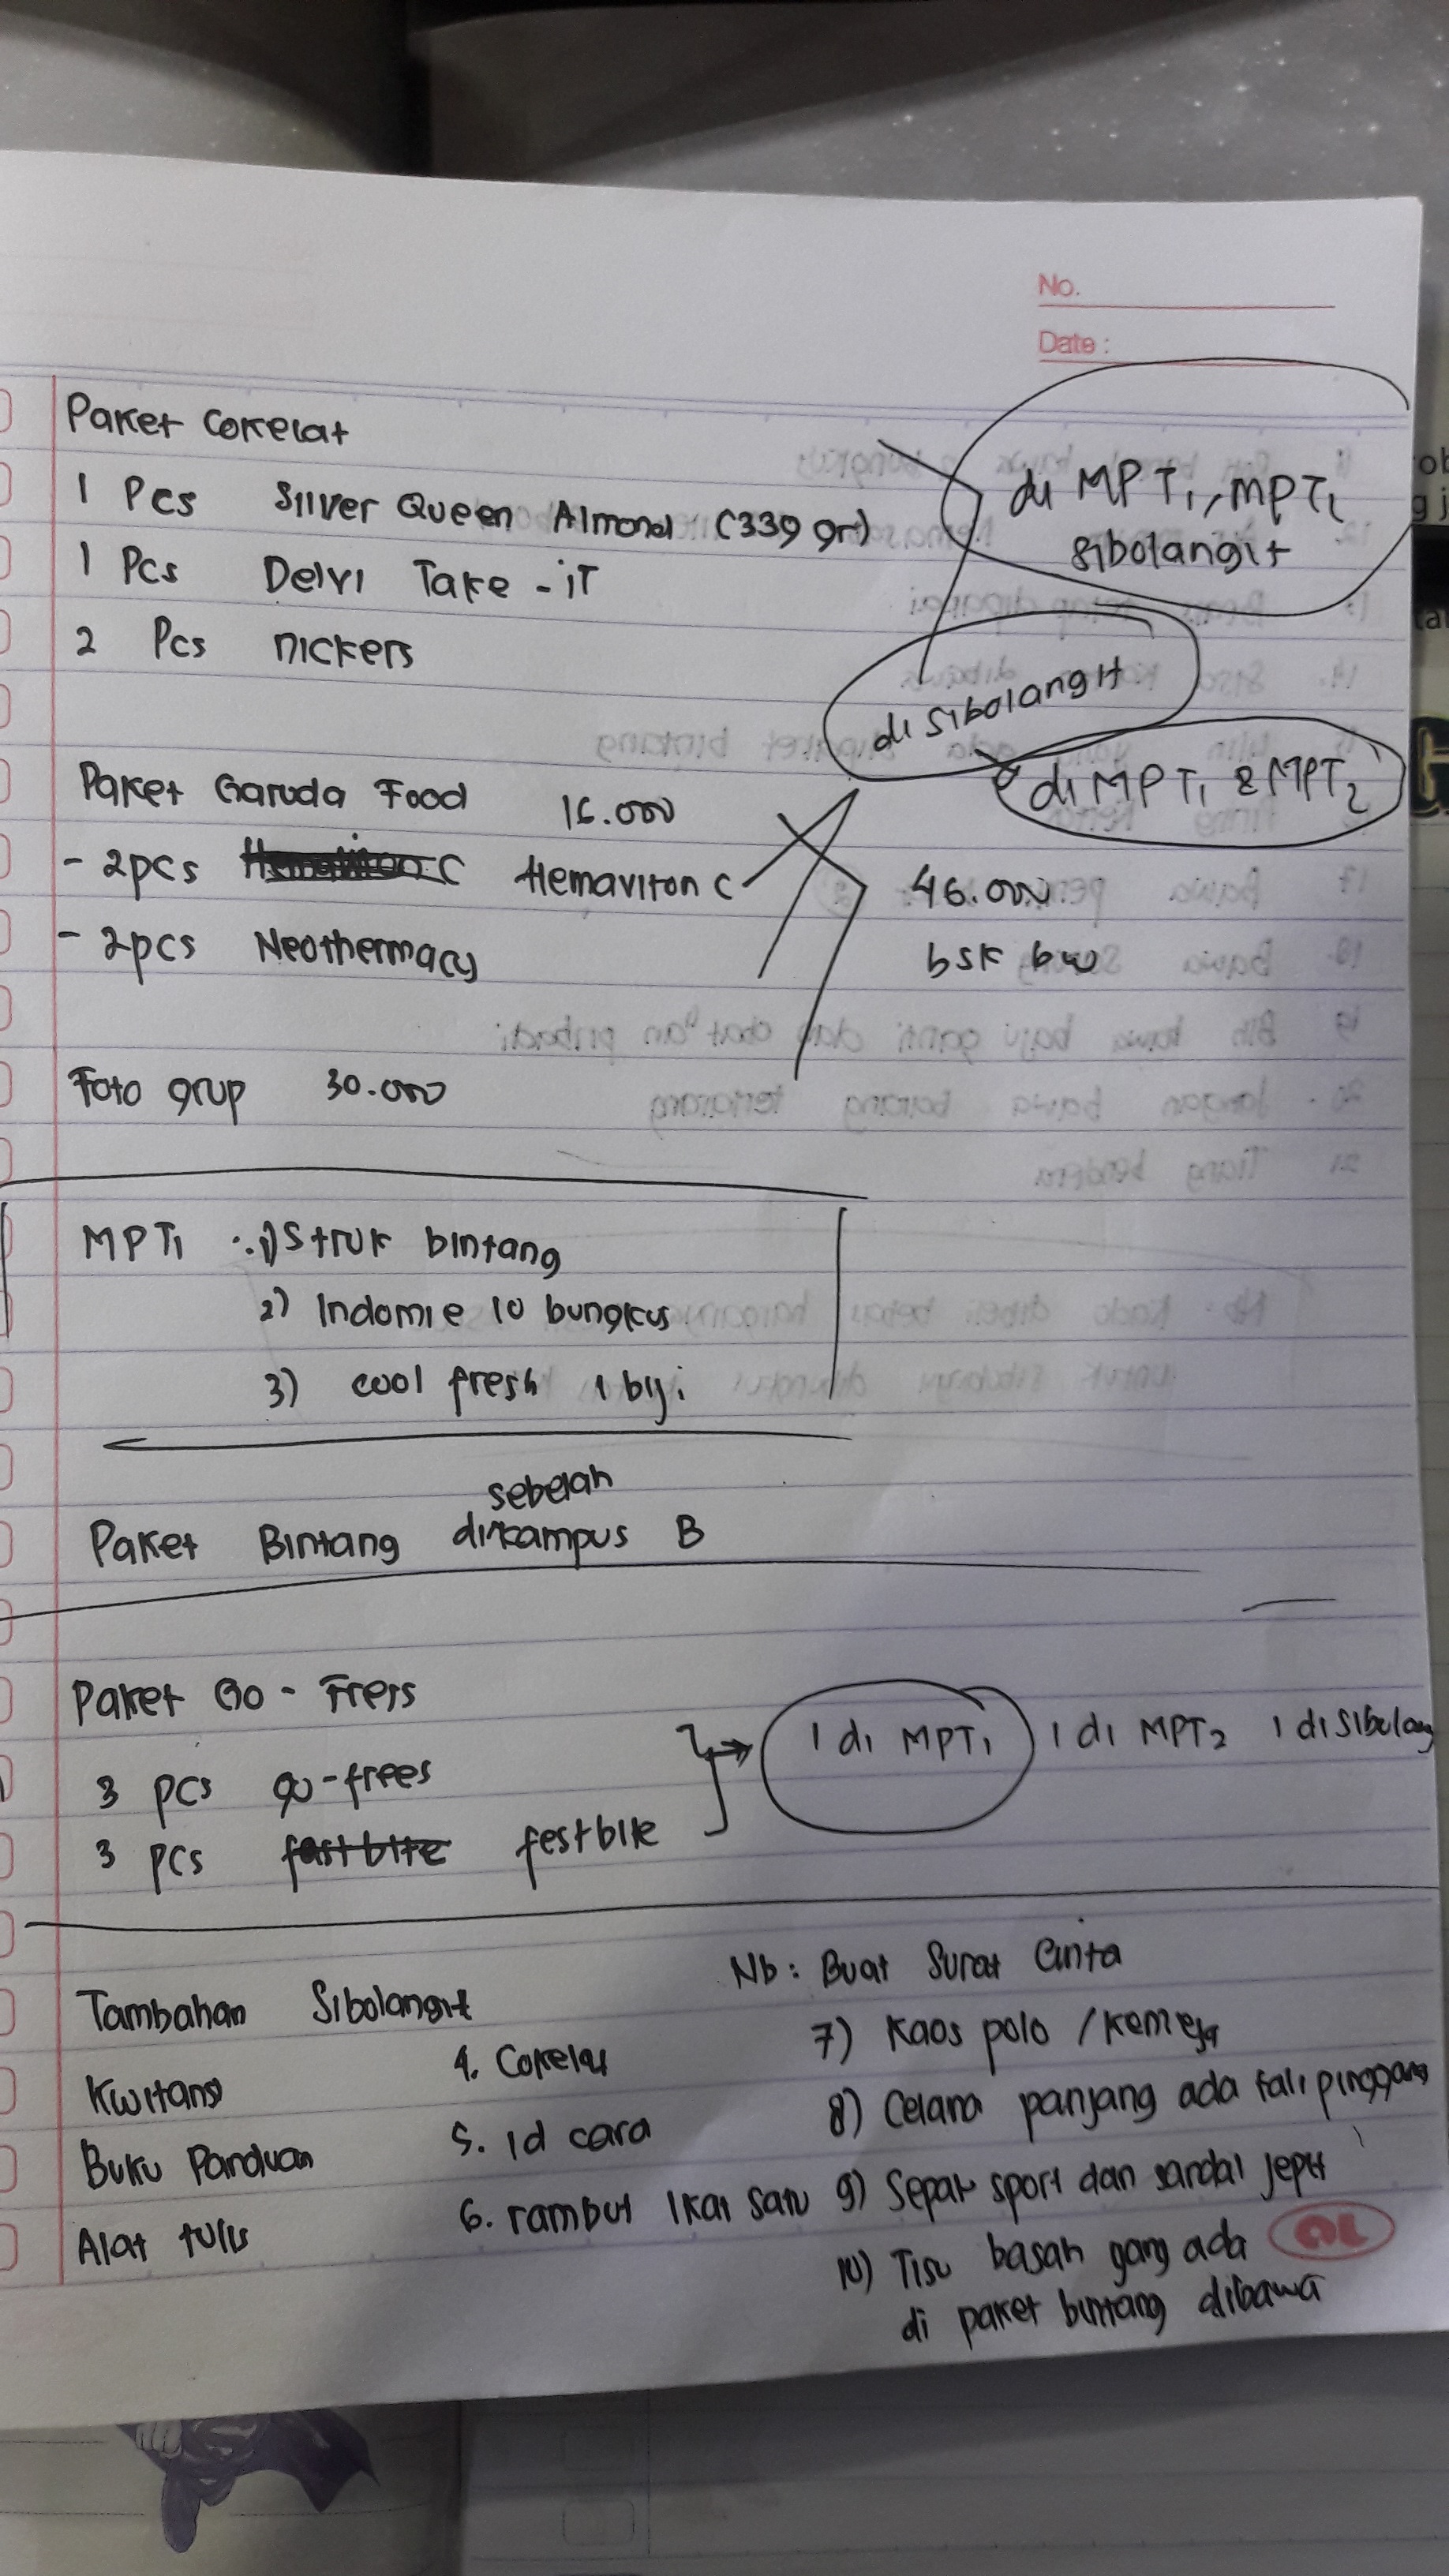 No.
Date :
Paket Cokelat
1 Pcs Silver Queen Almond (339 gr)
1 Pcs Delvi Take - iT
2 Pcs nickers
di MPT1, MPT2
sibolangit
di sibolangit
di MPT1 & MPT2
Paket Garuda Food 16.000
- 2pcs C Hemaviton C
- 2pcs Neothermacy
46.000
bsk bw
Foto grup 30.000
MPT1 : 1) Struk bintang
2) Indomie 10 bungkus
3) cool fresh 1 biji
sebelah
Paket Bintang dikampus B
Paket Go - Frers
3 pcs go-frees
3 pcs fastbite festbite
1 di MPT1 1 di MPT2 1 di sibolang
Tambahan Sibolangit
Kwitansi
Buku Panduan
Alat tulis
4. Cokelat
5. Id card
6. rambut Ikat satu
Nb : Buat Surat Cinta
7) Kaos polo / kemeja
8) Celana panjang ada tali pinggang
9) Sepat sport dan sandal jepit
10) Tisu basah yang ada
di paket bintang dibawa